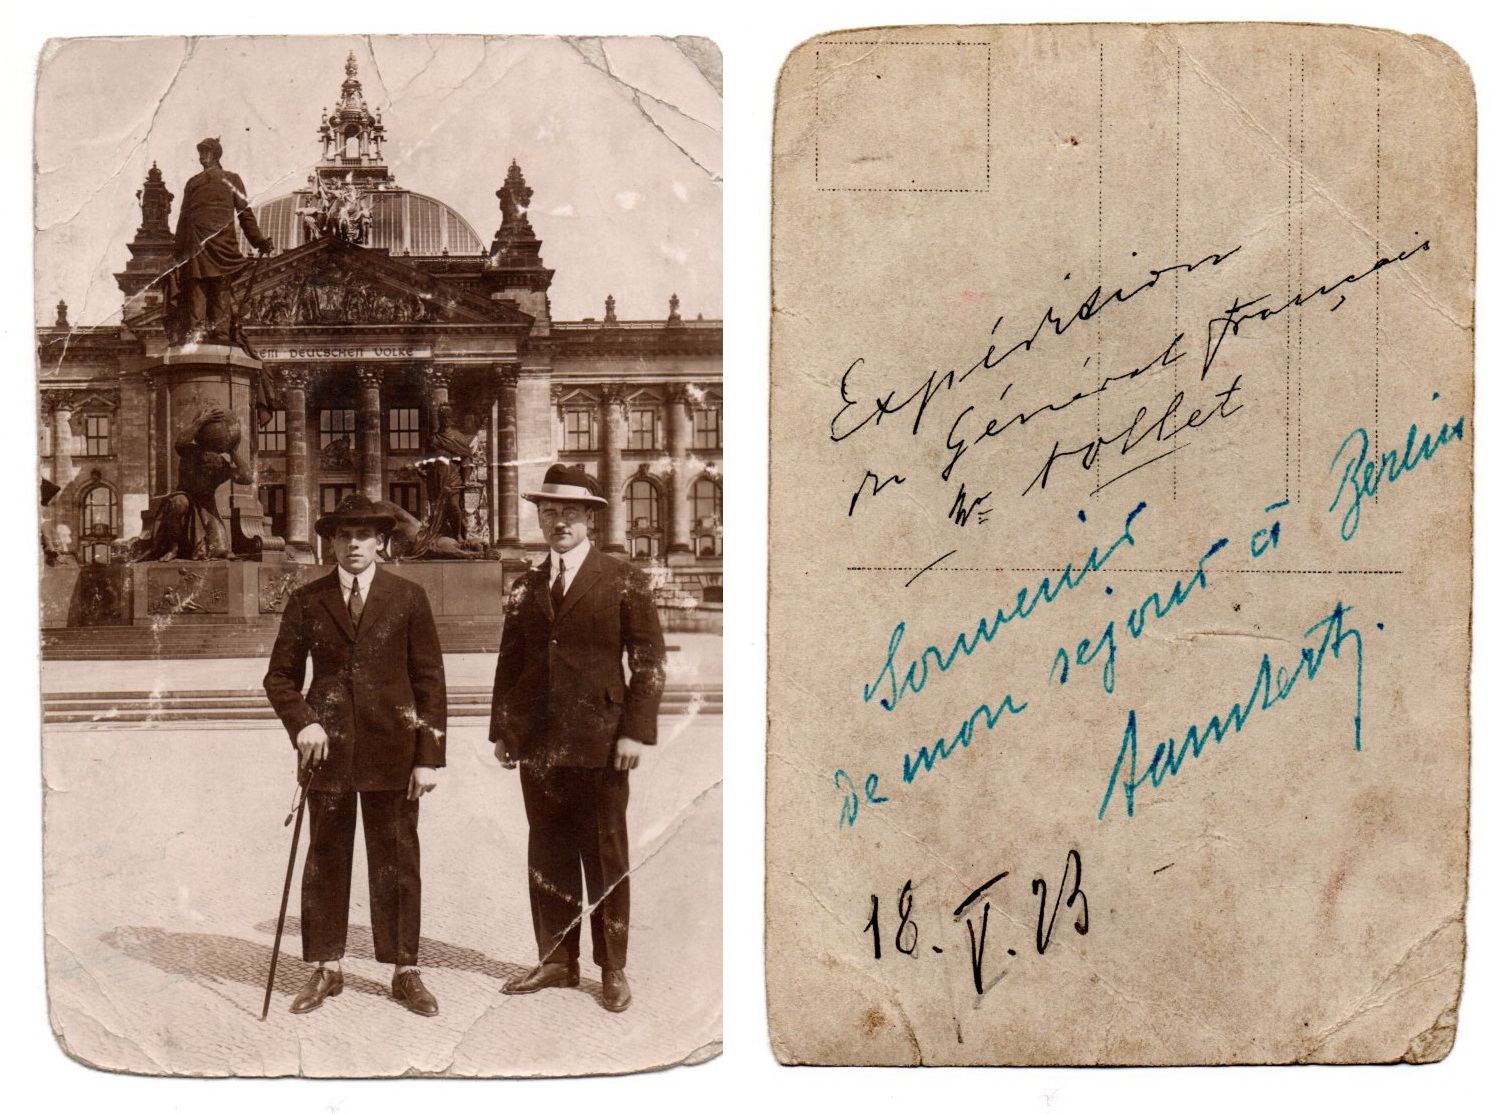 DEM DEUTSCHEN VOLKE
Expédition
du Général français
Mr Nollet
Souvenir
de mon sejour à Berlin
18. V. 23